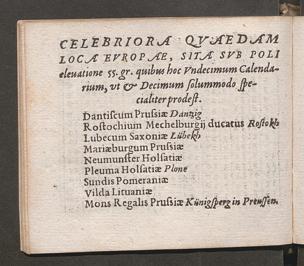 CELEBRIORA QVAEDAM
LOCA EVROPAE, SITA SVB POLI
eleuatione 55. gr. quibus hoc Vndecimum Calenda-
rium, vt & Decimum solummodo spe-
cialiter prodest.
Dantiscum Prussiæ Dantzig
Rostochium Mechelburgij ducatus Rostokh
Lubecum Saxoniæ Lübekh
Mariæburgum Prussiæ
Neumunster Holsatiæ
Pleuma Holsatiæ Plone
Sundis Pomeraniæ
Vilda Lituaniæ
Mons Regalis Prussiæ Künigsperg in Preussen.